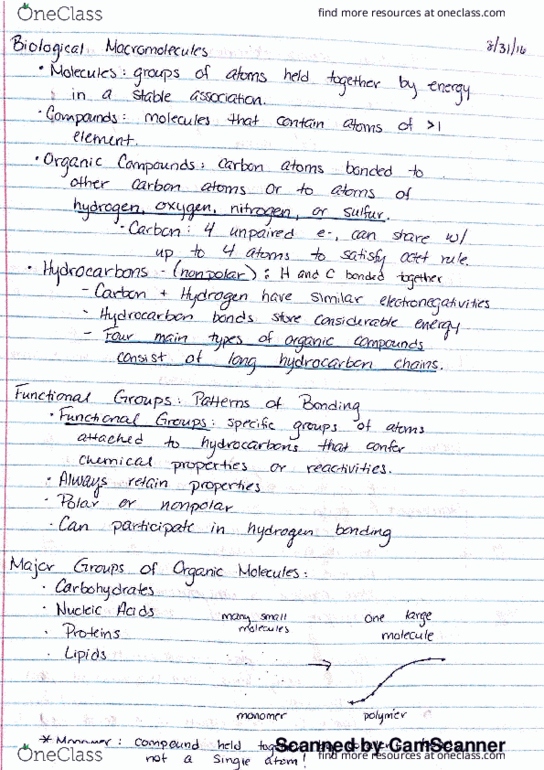 OneClass
find more resources at oneclass.com
Biological Macromolecules
8/31/16
• Molecules: groups of atoms held together by energy
in a stable association.
• Compounds: molecules that contain atoms of >1
element.
• Organic Compounds: carbon atoms bonded to
other carbon atoms or to atoms of
hydrogen, oxygen, nitrogen, or sulfur.
• Carbon: 4 unpaired e-, can share w/
up to 4 atoms to satisfy octet rule.
• Hydrocarbons - (nonpolar): H and C bonded together
- Carbon + Hydrogen have similar electronegativities
- Hydrocarbon bonds store considerable energy
- Four main types of organic compounds
consist of long hydrocarbon chains.
Functional Groups: Patterns of Bonding
• Functional Groups: specific groups of atoms
attached to hydrocarbons that confer
chemical properties or reactivities.
• Always retain properties
• Polar or nonpolar
• Can participate in hydrogen bonding
Major Groups of Organic Molecules:
• Carbohydrates
• Nucleic Acids
• Proteins
• Lipids
many small
molecules
→
One large
molecule
monomer
polymer
* : compound held
not a single atom!
Scanned by CamScanner
OneClass
find more resources at oneclass.com